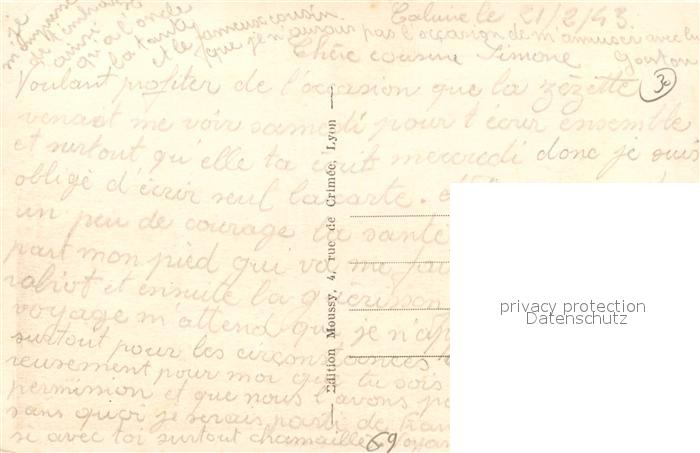 Caluire le 21/2/43.
Chère cousine Simone
Voulant profiter de l'occasion que la zézette
venait me voir samedi pour t écrir ensemble
et surtout qu'elle ta écrit mercredi donc je suis
obligé d'écrir seul la carte.
un peu de courage la santé
part mon pied qui va me
et ensuite la guérisson
voyage m'attend que je n'ap
surtout pour les circonstances
reusement pour moi que tu sois
permission et que nous l'avons
sans quoi je serais parti de
si avec toi surtout chamaille
je
m'empresse
de t'embrasser
ainsi
qu'a l'oncle
la tante
et le fameux cousin.
que je n'aurais pas l'occasion de m'amuser avec lui
Gouton
30
69
Edition Moussy, 4, rue de Crimée, Lyon
privacy protection
Datenschutz